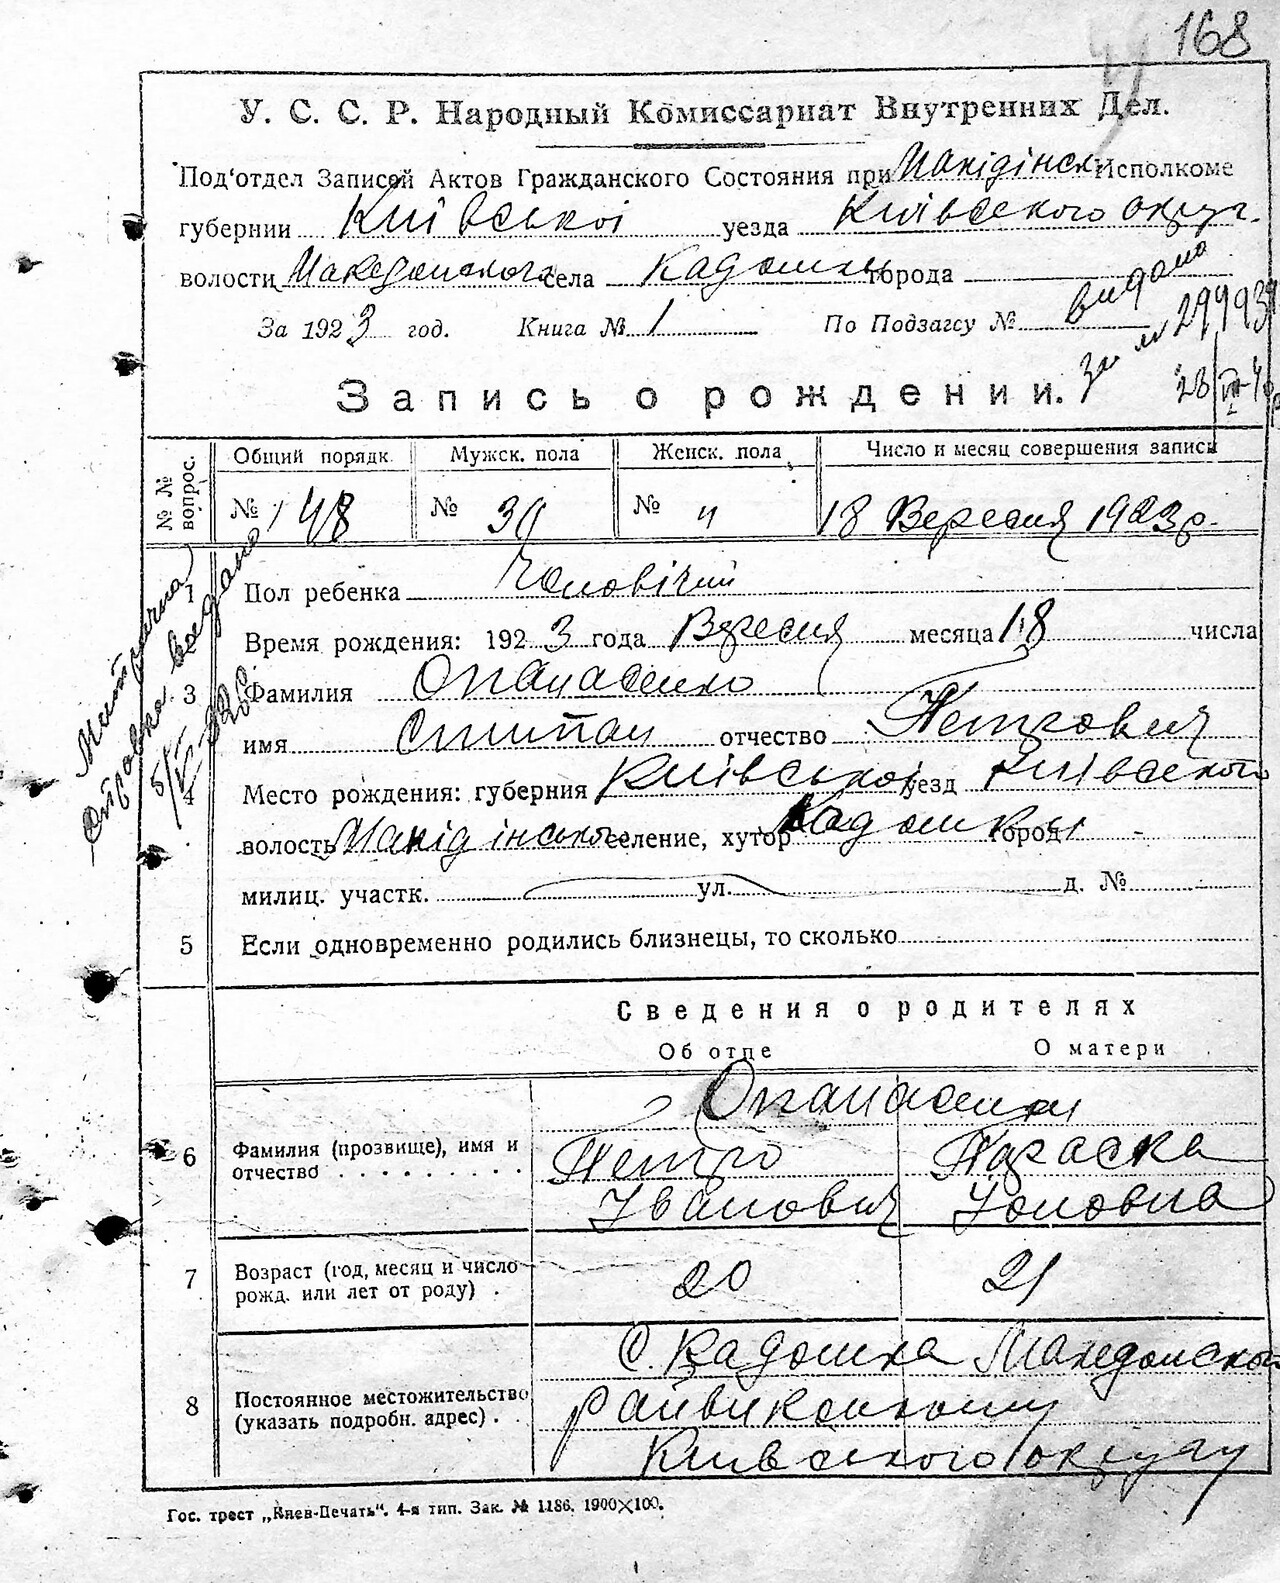 168
У. С. С. Р. Народный Комиссариат Внутренних Дел.
Под'отдел Записей Актов Гражданского Состояния при Макідінск Исполкоме
губернии Київської уезда Київського округ.
волости Македонского села Кадомки города
видано
За 1923 год. Книга № 1 По Подзагсу №
за №
Запись о рождении.
№ № вопрос.
Общий порядк. Мужск. пола Женск. пола Число и месяц совершения записи
№ 148 № № 18 Вересня 1923 р.
Митрична
справка видано
1 Пол ребенка Чоловічий
Время рождения: 1923 года Вересня месяца 18 числа
3 Фамилия Опанасенко
имя Степан отчество Петрович
4 Место рождения: губерния Київської уезд Київського
волость Макідінсько селение, хутор Кадомки город -
милиц. участк. ул. д. №
5 Если одновременно родились близнецы, то сколько
Сведения о родителях
Об отце О матери
Опанасенки
6 Фамилия (прозвище), имя и Петро Параска
отчество Іванович
7 Возраст (год, месяц и число рожд. или лет от роду) . 20 21
С. Кадомка Македонского
8 Постоянное местожительство (указать подробн. адрес) . . райвиконкому
Київського округу
Гос. трест „Киев-Печать". 4-я тип. Зак. № 1186. 1900×100.